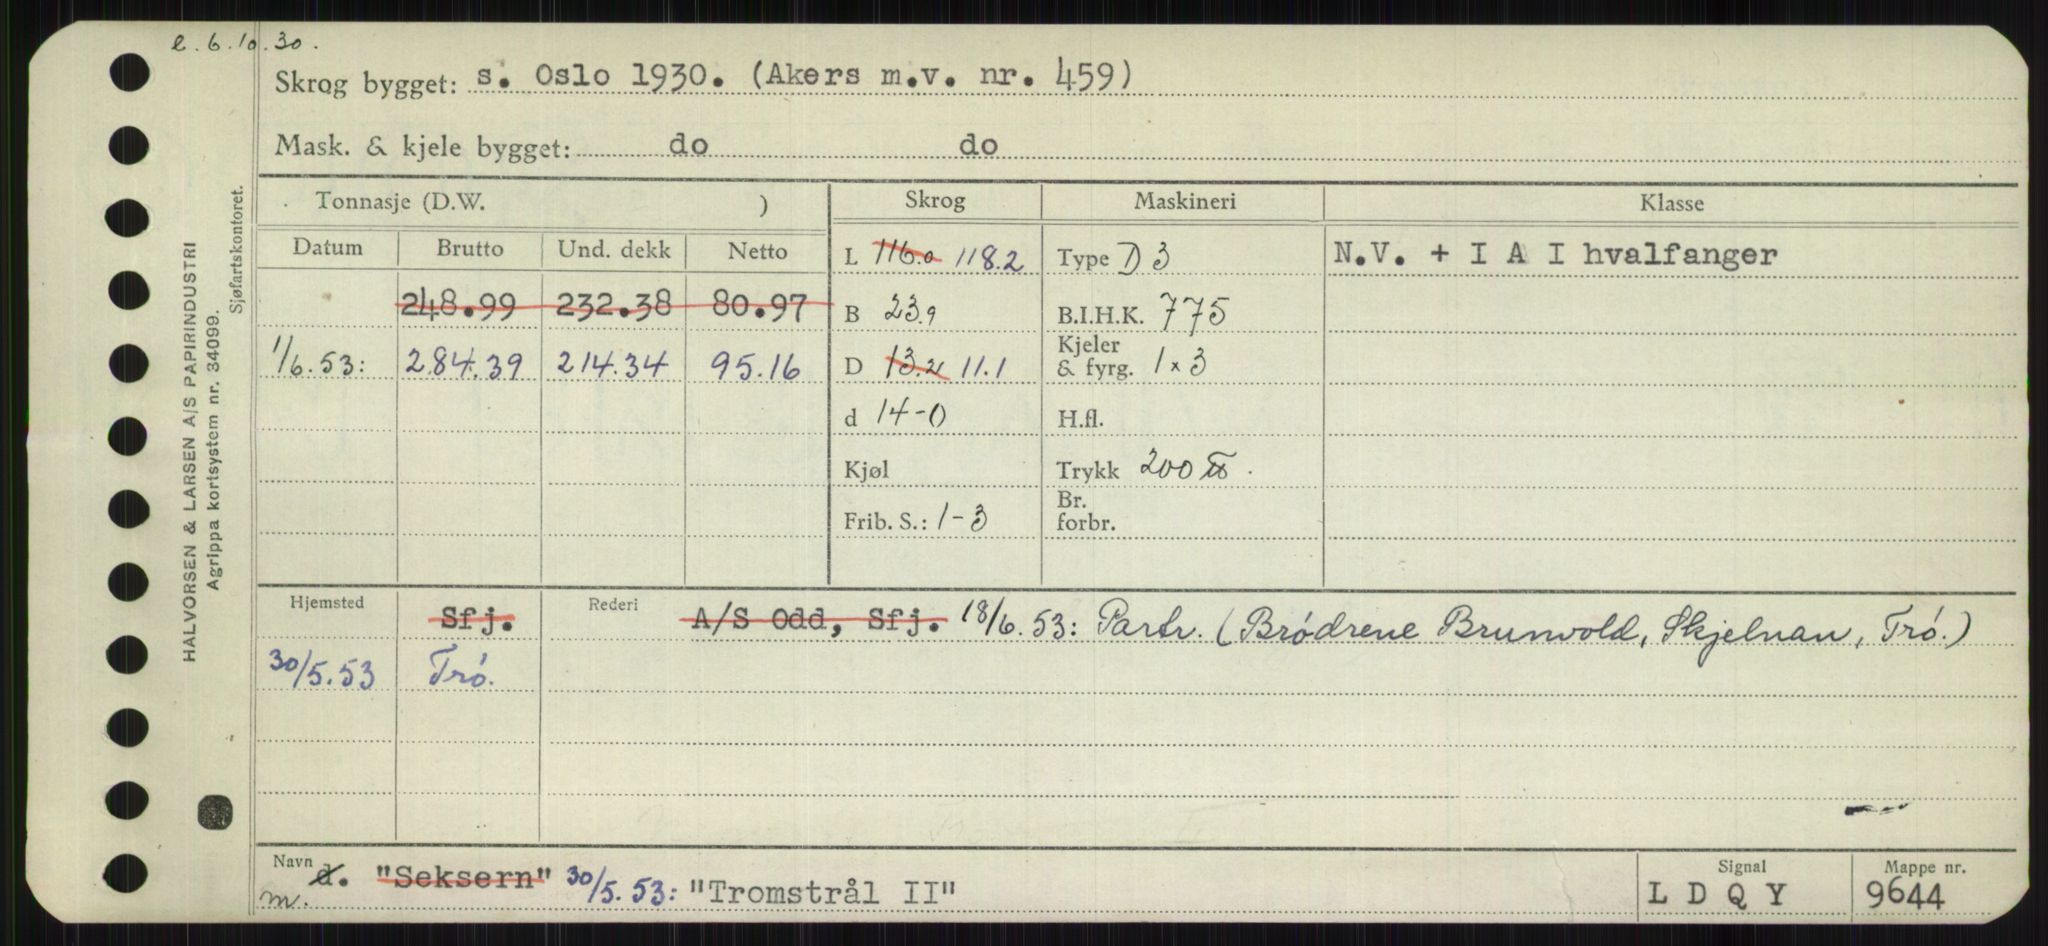 e. 6.10.30.
Skrog bygget: s. Oslo 1930. (Akers m.v. nr. 459)
Mask. & kjele bygget: do do
Tonnasje (D.W. ) Skrog Maskineri Klasse
Datum Brutto Und. dekk Netto L 116.0 118.2 Type D 3 N.V. + I A I hvalfanger
248.99 232.38 80.97 B 23.9 B.I.H.K. 775
1/6.53: 284.39 214.34 95.16 D 13.2 11.1 Kjeler & fyrg. 1 x 3
d 14-0 H.fl.
Kjøl Trykk 200 ℔.
Frib. S.: 1-3 Br. forbr.
Hjemsted Sfj. Rederi A/S Odd, Sfj. 18/6.53: Partr. (Brødrene Brunvold, Skjelnan, Trö.)
30/5.53 Trö.
Navn d. "Seksern" 30/5.53: "Tromstrål II" Signal Mappe nr.
m. L D Q Y 9644
HALVORSEN & LARSEN A/S PAPIRINDUSTRI
Agrippa kortsystem nr. 34099.
Sjøfartskontoret.